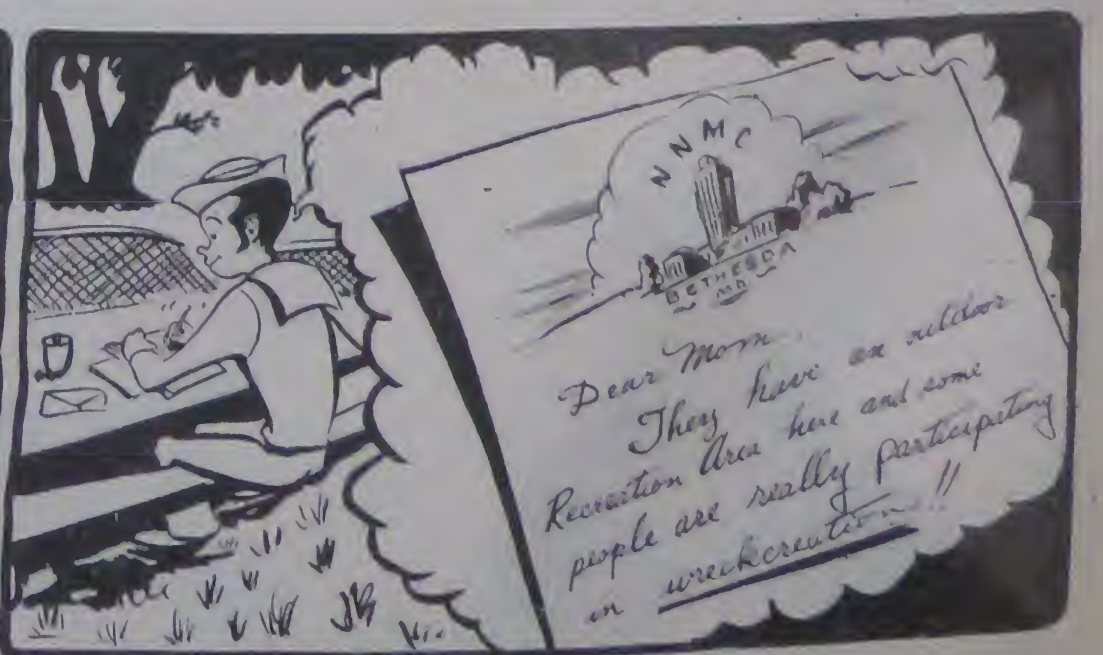 NNMC
BETHESDA
MD.
Dear Mom,
They have an outdoor
Recreation Area here and some
people are really participating
in wreckcreation!!